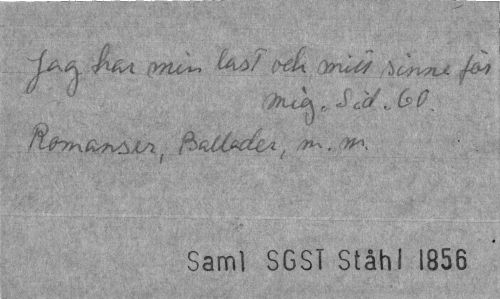 Jag har min last och mitt sinne för
mig. Sid. 60.
Romanser, Ballader, m. m.
Saml SGST Ståhl 1856